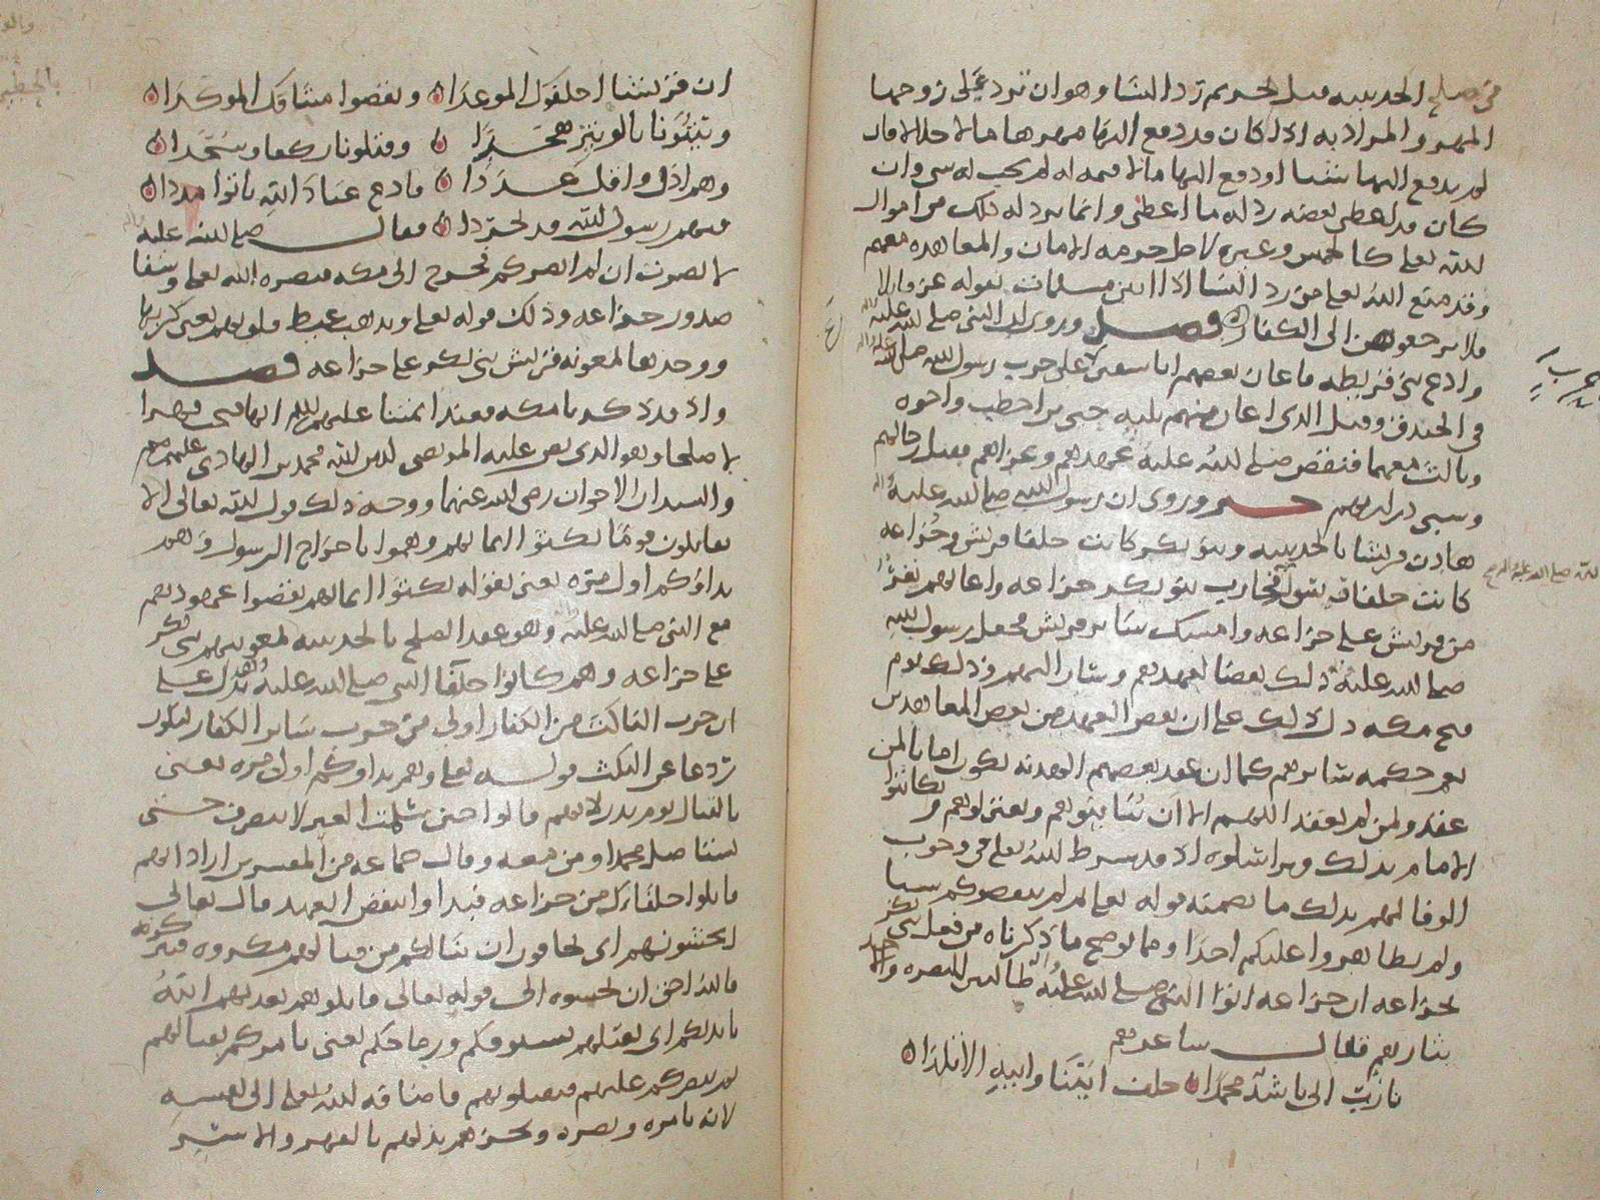 من صلح الحديبيه قبل تحريم رد النسا وهو ان ترد على زوجها
المهر والمراد به اذا كان قد دفع اليها مهرها مالا حلالا فان
لم يدفع اليها شيئا او دفع اليها مالا قيمه له لم يجب له شي وان
كان قد اعطى بعضه رد له ما اعطى وانما يرد له ذلك من اموال
الله تعلى كالخمس وغيره لاجل حرمه الامان والمعاهده معهم
وقد منع الله تعلى من رد النسا اذا اتين مسلمات بقوله عز وعلا
فلا ترجعوهن الى الكفار فصل وروي ان النبي صلى الله عليه
وادع بني قريظه فاعان بعضهم ابا سفين على حرب رسول الله صلى الله
في الخندق وقيل الذي اعان منهم عليه حيي بن اخطب واخوه
وثالث معهما فنقض صلى الله عليه عهدهم وغزاهم فقتل رجالهم
وسبى ذراريهم خبر وروى ان رسول الله صلى الله عليه
هادن قريشا بالحديبيه وبنو بكر كانت حلفا قريش وخزاعه
كانت حلفا فحارب بنو بكر خزاعه واعانهم نفر
من قريش على خزاعه وامسك سائر قريش فجعل رسول الله
صلى الله عليه ذلك نقضا لعهدهم وسار اليهم وذلك يوم
فتح مكه دل ذلك على ان نقض العهد من بعض المعاهدين
يعم حكمه سائرهم كما ان عقد بعضهم الهدنه يكون امانا لمن
عقد ولمن لم يعقد اللهم الا ان يباينوهم ويعتزلوهم و
الامام بذلك ويراسلوه اذ قد شرط الله تعلى في وجوب
الوفا لهم بذلك ما تضمنه قوله تعلى ثم لم ينقصوكم شيا
ولم يظاهروا عليكم احدا ومما يوضح ما ذكرناه من فعل بني بكر
بخزاعه ان خزاعه اتوا النبي صلى الله عليه طالبين للنصره
بثارهم فقال ساعدهم
يا رب اني ناشد محمدا حلف ابينا وابيه الاتلدا
ان قريشا اخلفوك الموعدا ونقضوا ميثاقك الموكدا
وبيتونا بالوتير هجدا وقتلونا ركعا وسجدا
وهم اذل واقل عددا فادع عباد الله ياتوا مددا
فيهم رسول الله قد تجردا فقال صلى الله عليه
لا نصرت ان لم انصركم فخرج الى مكه فنصره الله تعلى وشفا
صدور خزاعه وذلك قوله تعلى ويذهب غيظ قلوبهم يعنى كربها
ووجدها لمعونه قريش بني بكر على خزاعه فصل
واذ قد ذكرنا مكه فعند ائمتنا عليهم السلم انها فتحت قهرا
لا صلحا وهو الذي نص عليه المرتضى لدين الله محمد بن الهادي عليهم السلم
والسيدان الاخوان رضي الله عنهما ووجه ذلك قول الله تعالى الا
تقاتلون قوما نكثوا ايمانهم وهموا باخراج الرسول وهم
بداوكم اول مره يعنى بقوله نكثوا ايمانهم نقضوا عهودهم
مع النبي صلى الله عليه وهو عقد الصلح بالحديبيه لمعونتهم بني بكر
على خزاعه وهم كانوا حلفا النبي صلى الله عليه فدل على
ان حرب الناكث من الكفار اولى من حرب سائر الكفار ليكون
ردعا عن النكث قوله تعلى وهم بداوكم اول مره يعنى
بالقتال يوم بدر لانهم قالوا حين سلمت العير لا ننصرف حتى
نستاصل محمدا ومن معه وقال جماعه من المفسرين اراد انهم
قاتلوا حلفاءك من خزاعه فبداوا بنقض العهد قال تعالى
اتخشونهم اى تخافون ان ينالكم من قتالهم مكروه
فالله احق ان تخشوه الى قوله تعالى قاتلوهم يعذبهم الله
بايديكم اى يقتلهم بسيوفكم ورماحكم يعنى يامركم بقتالهم
ثم ينصركم عليهم فيقتلوهم فاضافه الله تعلى الى نفسه
لانه بامره ونصره ويخزهم بذلهم بالقهر والاسر